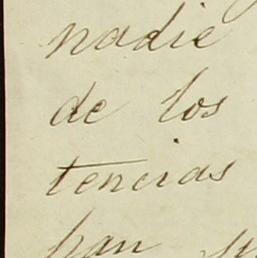 nadie
de los
tencias